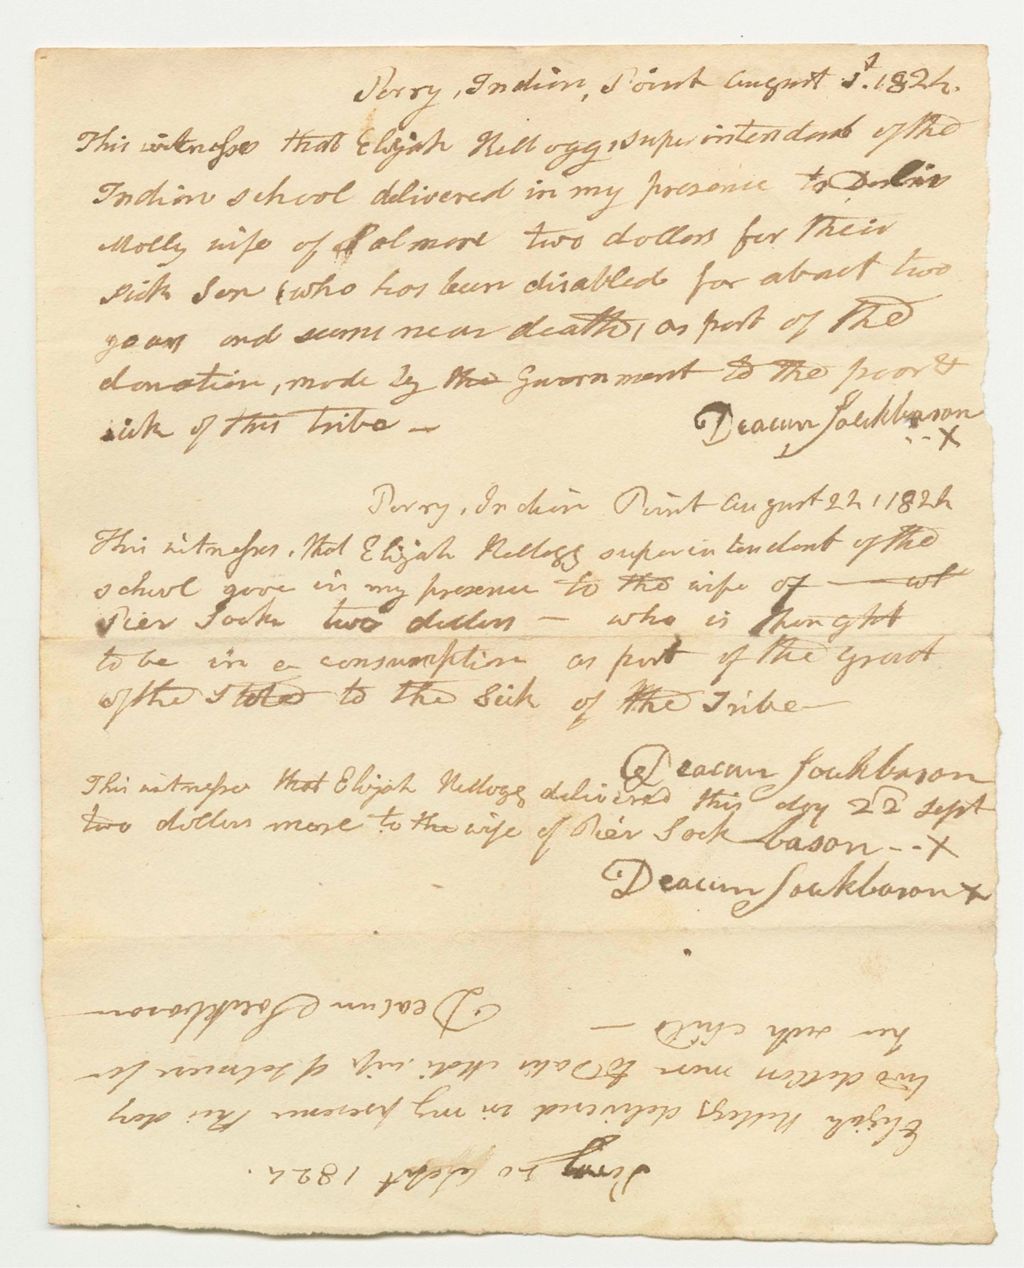 Perry, Indian, Point August 1st. 1824.
This witnesses that Elijah Kellogg, superintendent of the
Indian school delivered in my presence to
Molly wife of Solmore two dollars for their
sick son (who has been disabled for about two
years and seems near death, as part of the
donation, made by the Government to the poor &
sick of this tribe —
Deacun Sockbason
X
Perry, Indian Point August 22, 1824
This witnesses, that Elijah Kellogg superintendent of the
school gave in my presence to the wife of —
Pier Sock two dollars — who is thought
to be in a consumption as part of the grant
of the State to the Sick of the Tribe —
Deacun Sockbason
This witnesses that Elijah Kellogg delivered this day 22 Sept
two dollars more to the wife of Piér Sock bason -- X
Deacun Sockbason X
Perry 20 Sept 1824.
Elijah Kellogg delivered in my presence this day
two dollars more to wife of Solmore for
her sick child —
Deacun Sockbason